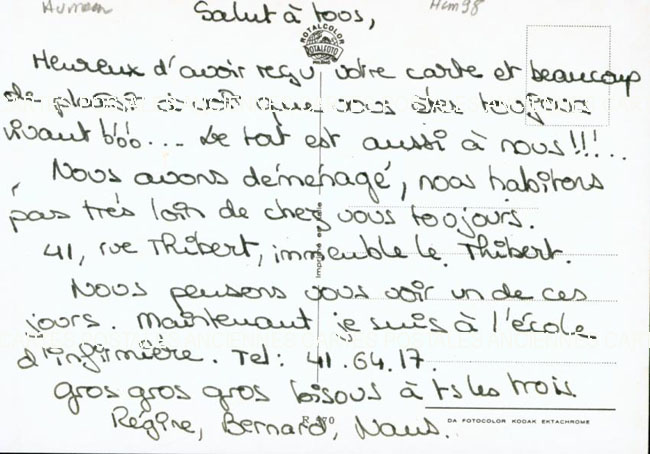 Aumean Hcm98
Salut à tous,
ROTALCOLOR
ROTALFOTO
MILANO
Heureux d'avoir reçu votre carte et beaucoup
de plaisir à voir que vous êtes toujours
vivant !!!... Le tout est aussi à nous !!!...
Nous avons déménagé, nous habitons
pas très loin de chez vous toujours.
41, rue Thibert, immeuble le Thibert.
Imprimé en Italie
Nous pensons vous voir un de ces
jours. Maintenant je suis à l'école
CARTES POSTALES ANCIENNES
d'infirmière. Tel: 41.64.17.
gros gros gros bisous à ts les trois
Régine, Bernard, Nans.
DA FOTOCOLOR KODAK EKTACHROME